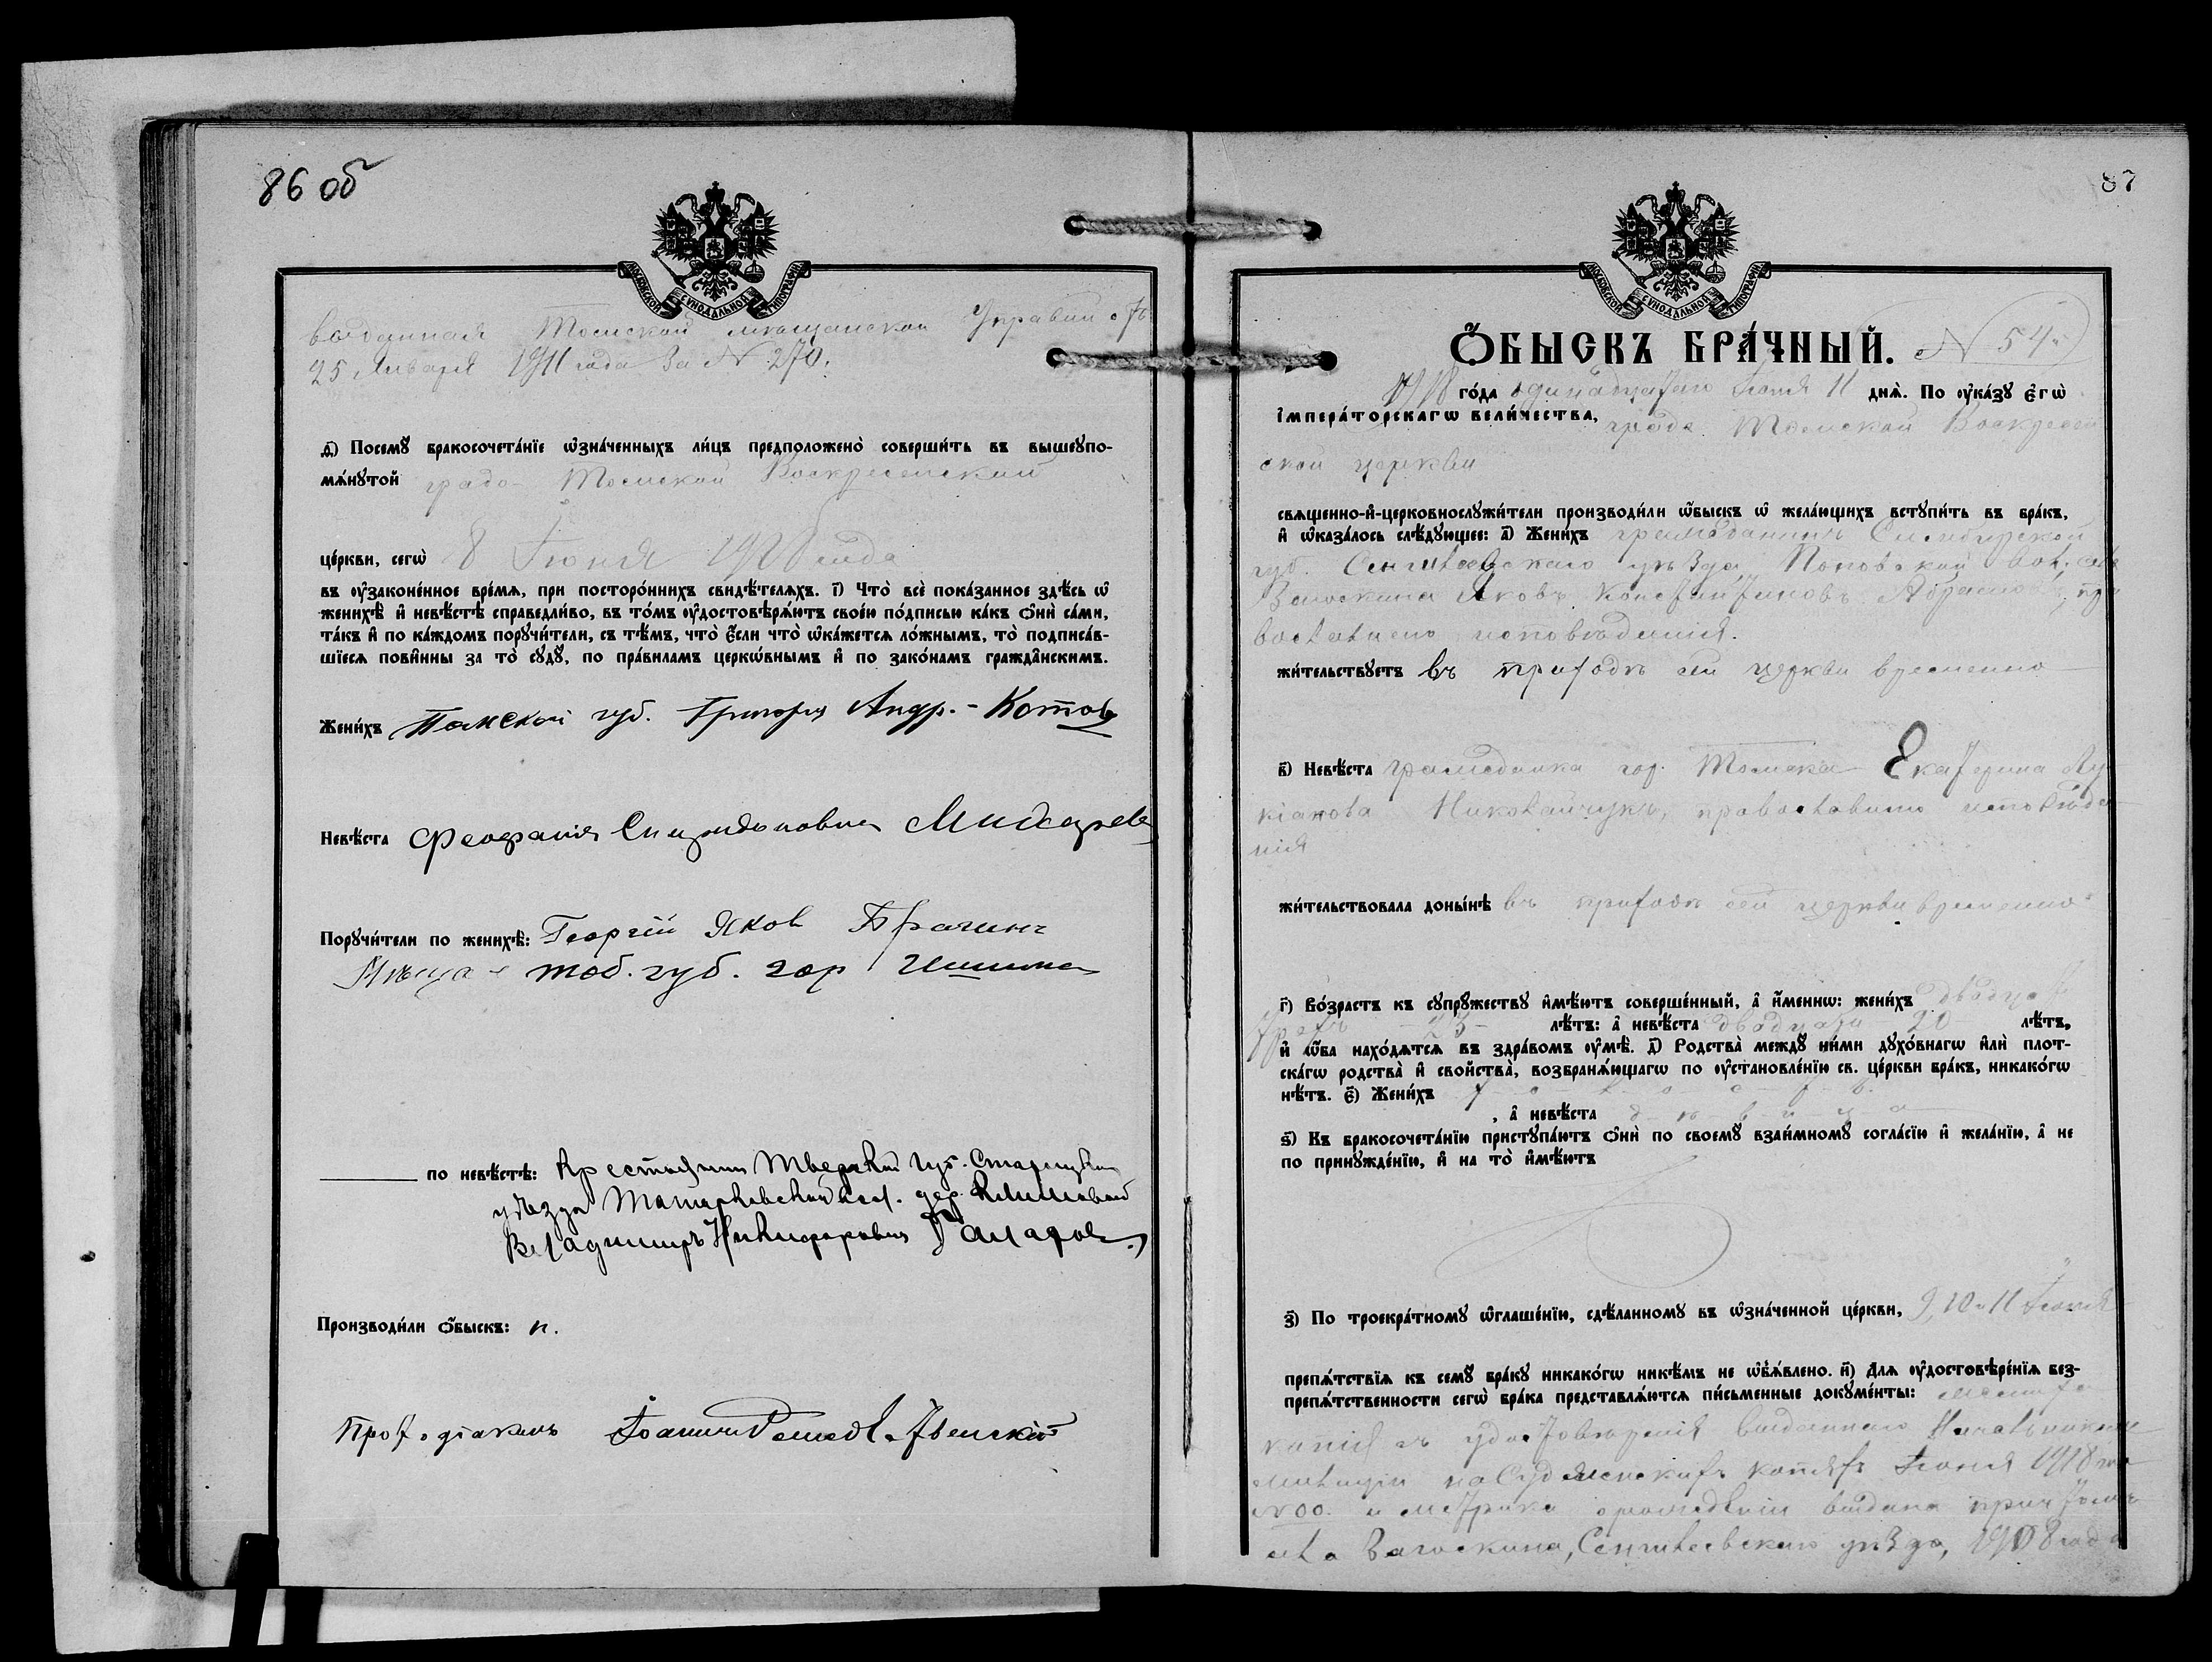 86 об
МОСКОВСКОЙ СУНОДАЛЬНОЙ ТИПОГРАФІИ
выданная Томской мѣщанской Управой отъ
25 Января 1911 года за № 270.
д҃) Посемꙋ̀ бракосочета́нїе ѡ҆зна́ченныхъ ли́цъ предположено̀ соверши́ть въ вышеꙋпо-
мѧ́нꙋтой градо-Томской Воскресенской
це́ркви, сегѡ̀ 8 Іюня 1918 года
въ ᲂу҆зако́не́нное вре́мѧ, при посторо́ннихъ свидѣ́телѧхъ. і҃) Что̀ всѐ пока́занное здѣ́сь ѡ҆
женихѣ̀ и҆ невѣ́стѣ справедли́во, въ то́мъ ᲂу҆достовѣрѧ́ютъ свое́ю по́дписью ка́къ ѻ҆нѝ са́ми,
та́къ и҆ по ка́ждомъ порꙋчи́тели, съ тѣ́мъ, что̀ є҆́сли что̀ ѡ҆ка́жетсѧ ло́жнымъ, то̀ подписа́в-
шїесѧ пови́нны за то̀ сꙋдꙋ̀, по пра́виламъ церкѡ́внымъ и҆ по зако́намъ гражда̂нскимъ.
Жени́хъ Томской губ. Григорій Андр. - Котовъ
Невѣ́ста Феофанія Спиридоновна
Порꙋчи́тели по женихѣ̀: Георгій Яков Брагинъ
тоб. губ. гор Ишима
по невѣ́стѣ: Крестьянин Тверской губ. Старицкаго
уѣзда дер. Климовой
Владимиръ Никифоровичъ
Производи́ли ѻ҆́быскъ: п.
Протодіаконъ Іоаннъ
87
МОСКОВСКОЙ СУНОДАЛЬНОЙ ТИПОГРАФІИ
Ѻ҆́БЫСКЪ БРА́ЧНЫЙ. № 54
1918 го́да одинадцатаго Іюня 11 днѧ̀. По ᲂу҆ка́зꙋ є҆гѡ̀
І҆мпера́торскагѡ вели́чества, градо Томской Воскресен
ской церкви
свѧще́нно-и҆-церковнослꙋжи́тели производи́ли ѡ҆́быскъ ѡ҆ жела́ющихъ встꙋпи́ть въ бра́къ,
и҆ ѡ҆каза́лось слѣ́дꙋющее: а҃) Жени́хъ гражданинъ Симбирской
губ. Сенгилеевскаго уѣзда, Поповской вол. села
Загоскина Яковъ Константиновъ Абрамовъ, пра
вославнаго исповѣданія.
жи́тельствꙋетъ въ приходѣ сей церкви временно
в҃) Невѣ́ста гражданка гор. Томска Екатерина Лу
кіанова Николайчукъ, православнаго исповѣда
нія
жи́тельствовала доны́нѣ въ приходѣ сей церкви временно
г҃) Во́зрастъ къ сꙋпрꙋ́жествꙋ и҆мѣ́ютъ соверше́нный, а҆ и҆́меннѡ: жени́хъ двадцать
трехъ - 23 - лѣ́тъ: а҆ невѣ́ста двадцати 20 лѣ́тъ,
и҆ ѡ҆́ба нахо́дѧтсѧ въ здра́вомъ ᲂу҆мѣ̀. д҃) Родства̀ междꙋ̀ ни́ми дꙋхо́внагѡ и҆лѝ плот-
ска́гѡ родства̀ и҆ сво́йства̀, возбранѧ́ющагѡ по ᲂу҆становле́нїю св. це́ркви бра́къ, никако́гѡ
нѣ́тъ. є҃) Жени́хъ х-о-л-о-с-т-ъ
, а҆ невѣ́ста д-ѣ-в-и-ц-а
ѕ҃) Къ бракосочета́нїю пристꙋпа́ютъ ѻ҆нѝ по своемꙋ̀ взаи́мномꙋ согла́сїю и҆ жела́нїю, а҆ не
по принꙋжде́нїю, и҆ на то̀ и҆мѣ́ютъ
з҃) По троекра́тномꙋ ѡ҆глаше́нїю, сдѣ́ланномꙋ въ ѡ҆зна́ченной це́ркви, 9, 10 и 11 Іюня
препѧ́тствїѧ къ семꙋ̀ бра́кꙋ никако́гѡ никѣ́мъ не ѡ҆б̾ѧ́влено. и҃) Длѧ ᲂу҆достовѣре́нїѧ без-
препѧ́тственности сегѡ̀ бра́ка представлѧ́ютсѧ пи́сьменные докꙋме́нты:
удостовѣренія выданнаго Начальникомъ
милиціи на Судженскихъ копяхъ Іюня 1918 го
№ 00. и метрика о рожденіи выдана причтомъ
села Загоскина, Сенгилеевскаго уѣзда, 1918 года